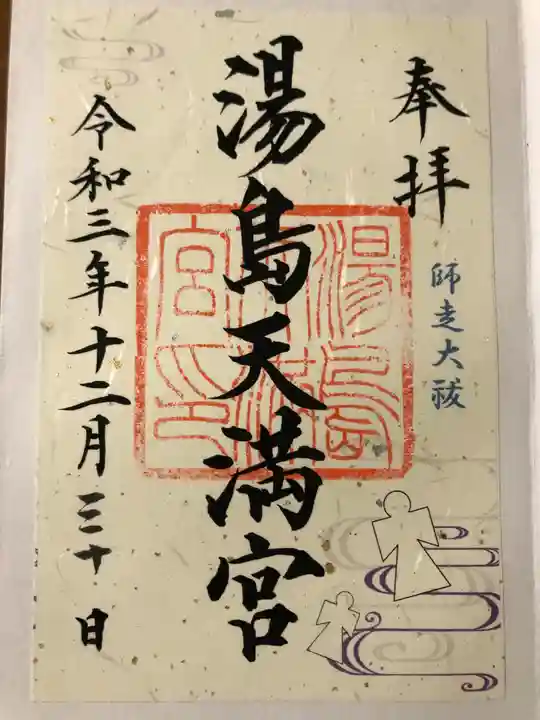 奉拝
師走大祓
湯島天満宮
湯島
天満
宮印
令和三年十二月三十日